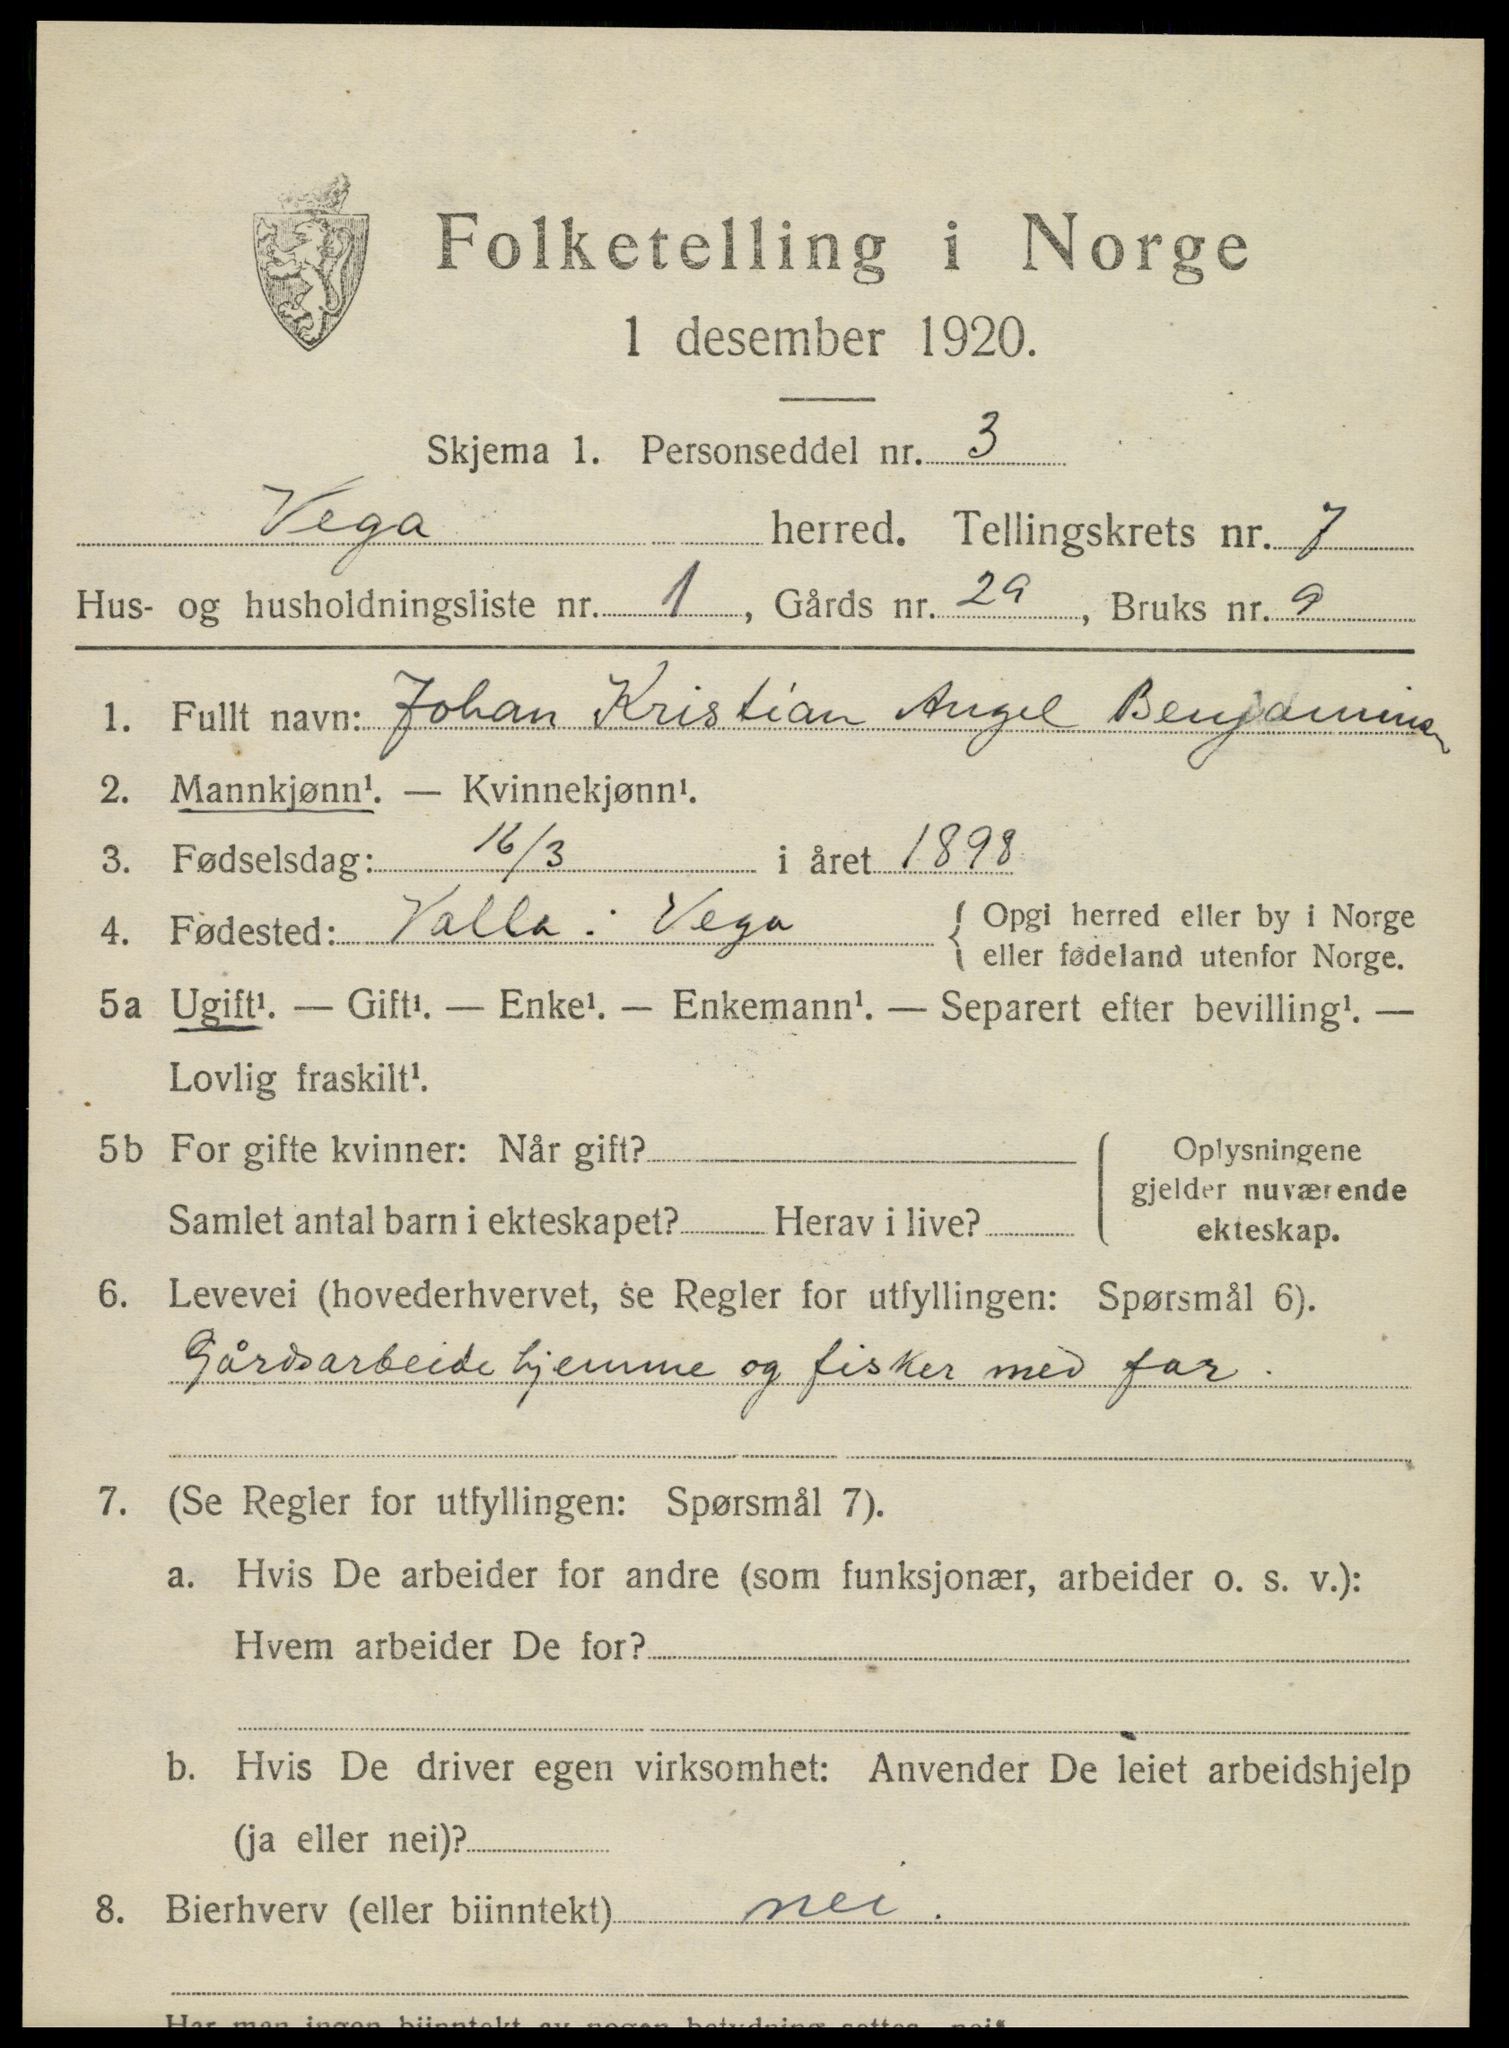 Folketelling i Norge
1 desember 1920.
Skjema 1. Personseddel nr. 3
Vega herred. Tellingskrets nr. 7
Hus- og husholdningsliste nr. 1, Gårds nr. 29, Bruks nr. 9
1. Fullt navn: Johan Kristian Angel Benjaminsen
2. Mannkjønn¹. — Kvinnekjønn¹.
3. Fødselsdag: 16/3 i året 1898
4. Fødested: Valla i Vega { Opgi herred eller by i Norge
eller fødeland utenfor Norge.
5a Ugift¹. — Gift¹. — Enke¹. — Enkemann¹. — Separert efter bevilling¹. —
Lovlig fraskilt¹.
5b For gifte kvinner: Når gift?
Samlet antal barn i ekteskapet? Herav i live?
Oplysningene
gjelder nuværende
ekteskap.
6. Levevei (hovederhvervet, se Regler for utfyllingen: Spørsmål 6).
Gårdsarbeide hjemme og fisker med far.
7. (Se Regler for utfyllingen: Spørsmål 7).
a. Hvis De arbeider for andre (som funksjonær, arbeider o. s. v.):
Hvem arbeider De for?
b. Hvis De driver egen virksomhet: Anvender De leiet arbeidshjelp
(ja eller nei)?
8. Bierhverv (eller biinntekt) nei.
Har man ingen biinntekt av nogen betydning settes „nei“